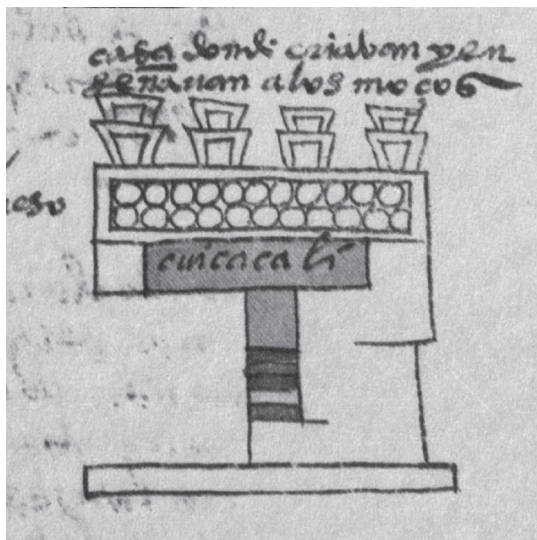 casa donde criaban y en
señauan a los moços
cuicacali